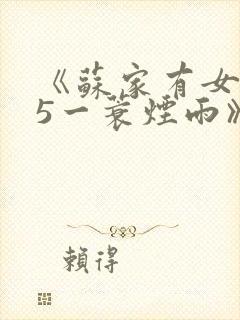 《蘇家有女
5一蓑煙雨》
賴得